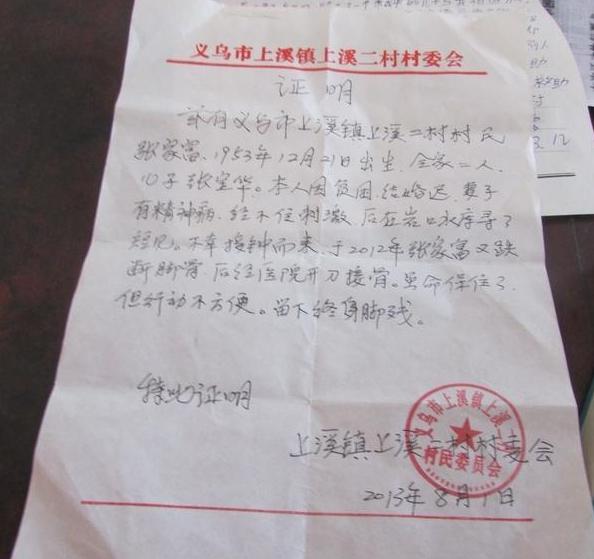 义乌市上溪镇上溪二村村委会
证明
兹有义乌市上溪镇上溪二村村民
张家富、1953年12月21日出生、全家二人、
儿子张宝华。本人因贫困、结婚迟、妻子
有精神病、经不住刺激、后在岩口水库寻了
短见。不幸接踵而来、于2012年张家富又跌
断脚骨、后经医院开刀接骨。虽命保住了、
但行动不方便。留下终身脚残。
特此证明
上溪镇上溪二村村委会
2013年8月1日
义乌市上溪镇上溪二
村村民委员会
助
救助
3.12